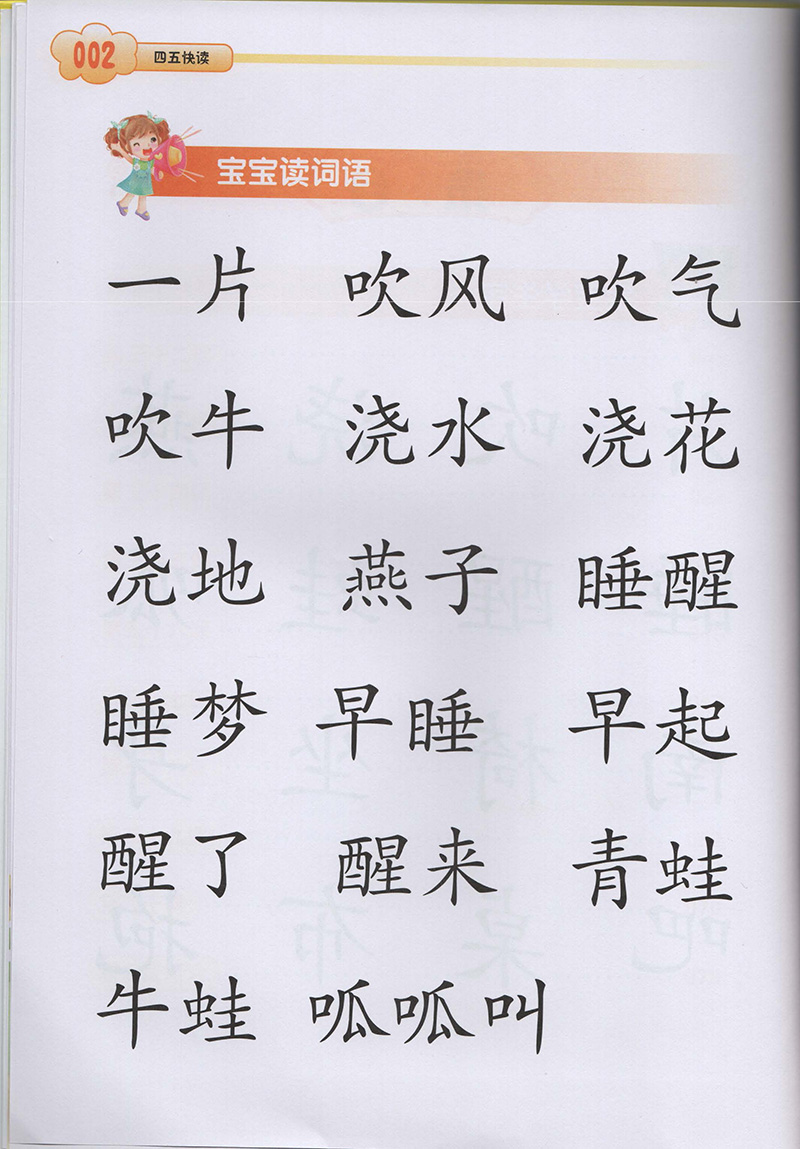 002 四五快读
宝宝读词语
一片 吹风 吹气
吹牛 浇水 浇花
浇地 燕子 睡醒
睡梦 早睡 早起
醒了 醒来 青蛙
牛蛙 呱呱叫